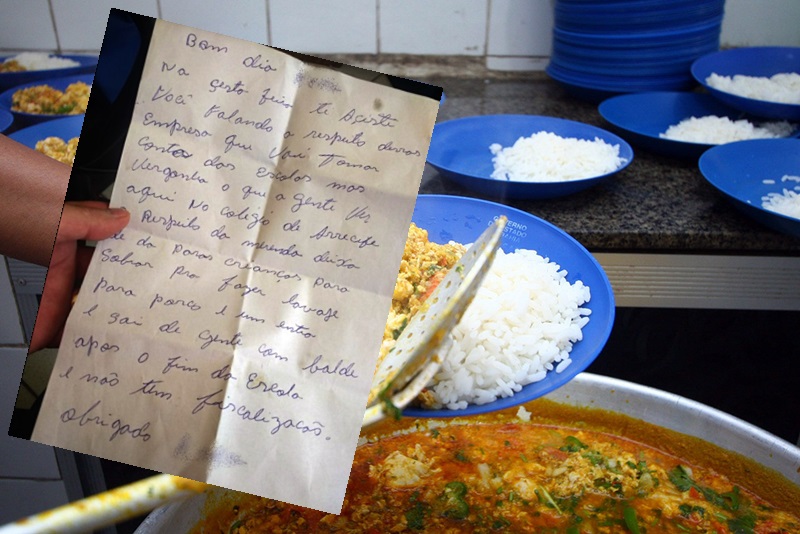 Bom dia
Na sesta feira te Assisti
Você falando a respeito dessa
Empresa que Vai Tomar
Conta das Escolas mas
Vergonha o que a gente Ver
aqui No colégio de Arrecife
Respeito da merenda deixa
de da paras crianças para
Sobrar pra fazer lavage
para porco e um entra
e sai de gente com balde
apos o fim da Escola
e não tem fiscalizacaõ.
obrigado
GOVERNO
DO ESTADO